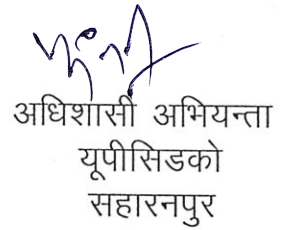 अधिशासी अभियन्ता
यूपीसिडको
सहारनपुर